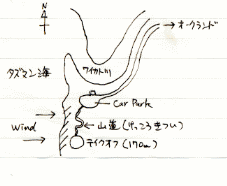 N
→オークランド
タズマン海
ワイカト川
Car Park
Wind
山道(けっこうきつい)
テイクオフ(170m)